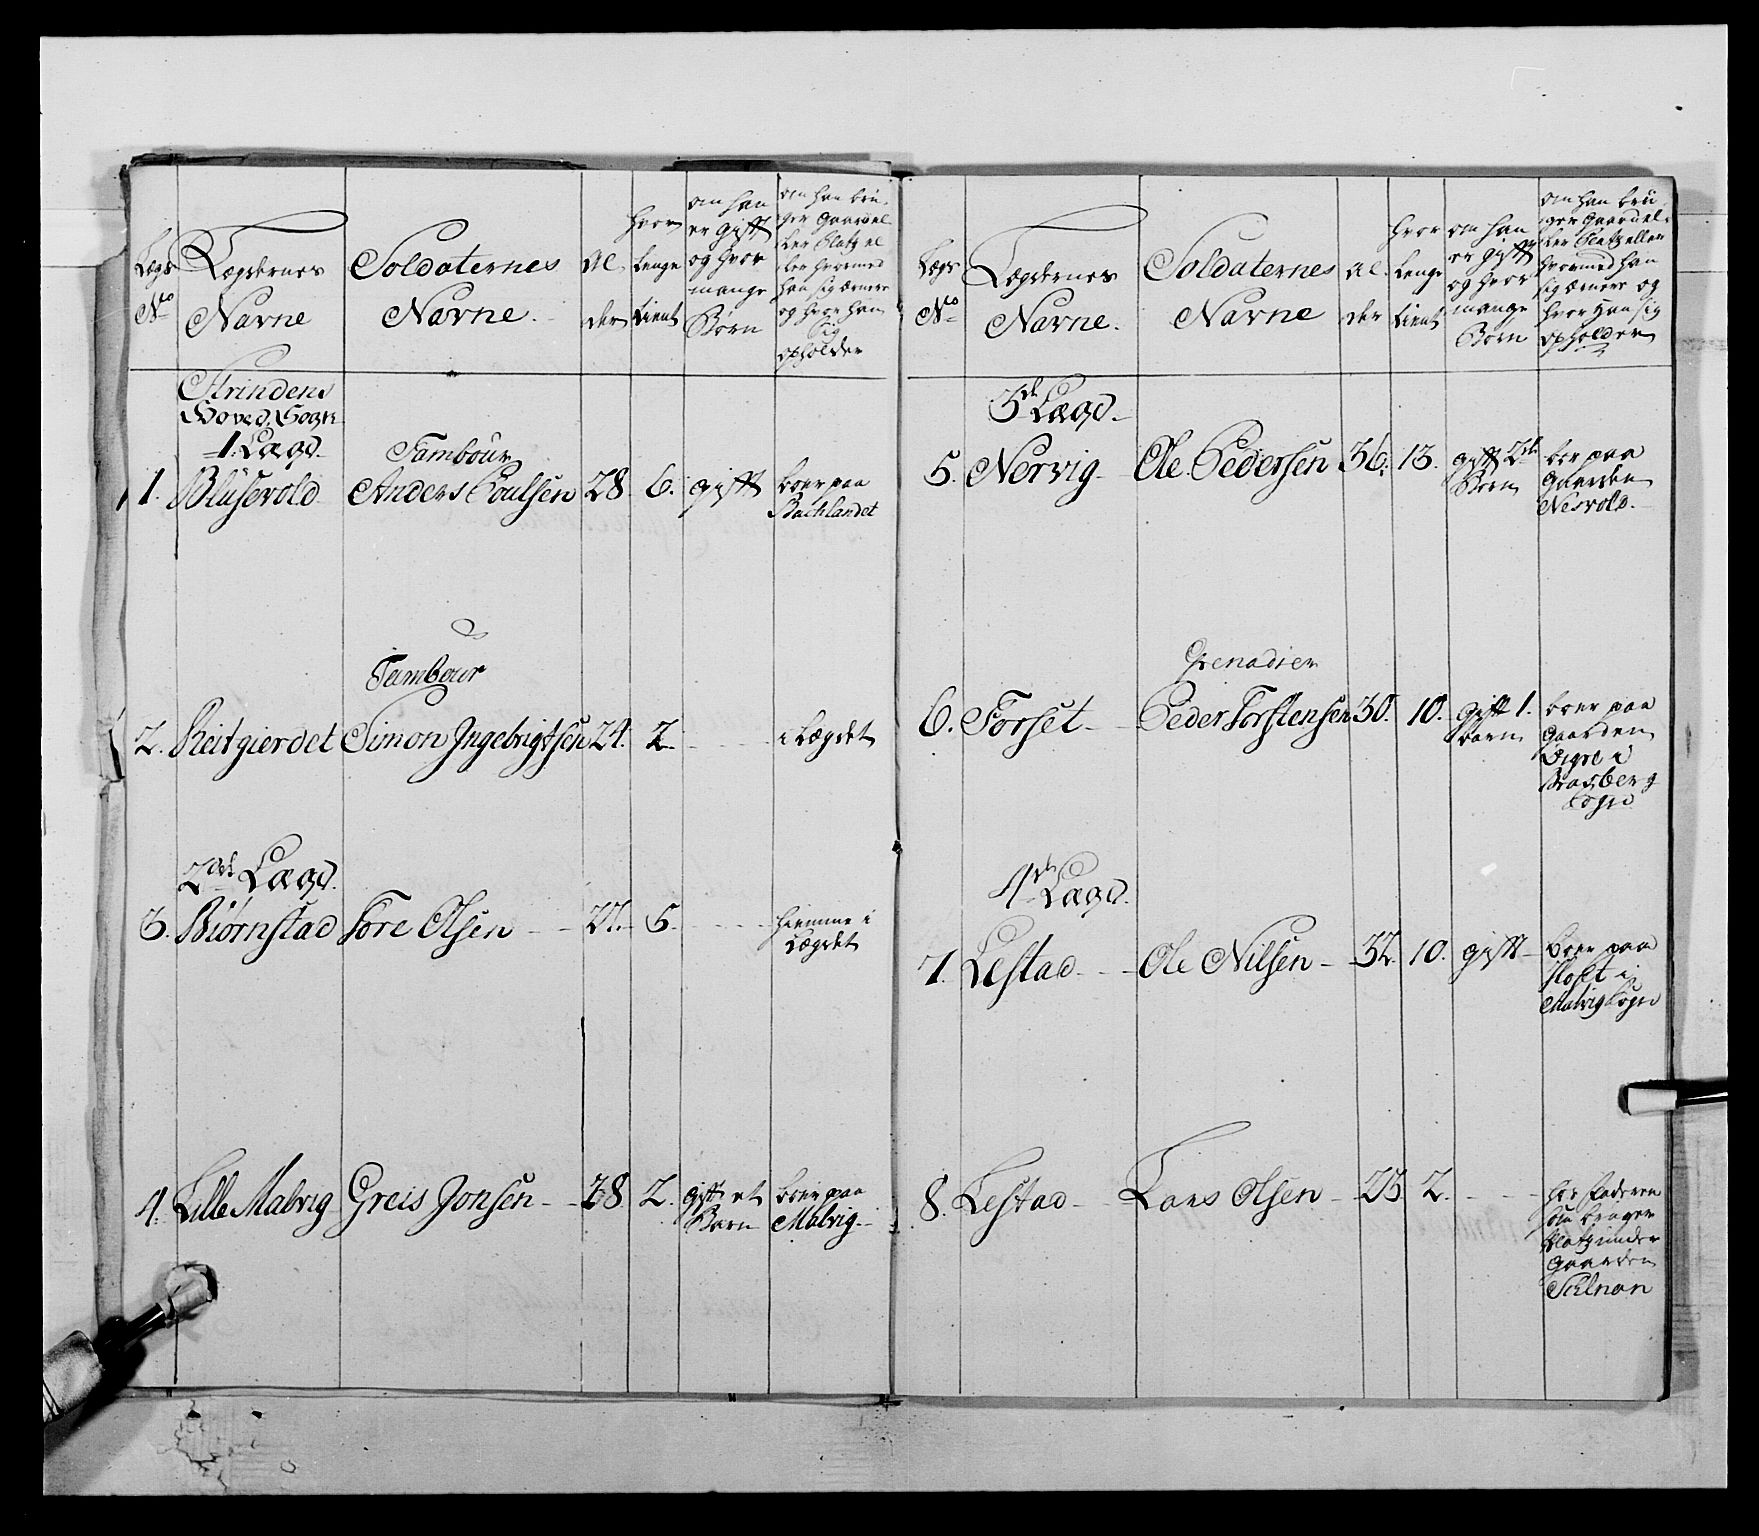 Lægs
No
Lægdernes
Navne
Soldaternes
Navne
Al
der
hvor
lenge
tient
om han
er gift
og hvor
mange
Børn
om han bru
ger Gaard el
ler Platz el
ler hvormed
han sig ærnere
og hvor han
sig
opholder
Strindens
Hoved Sogn
1. Lægd
Tambour
1. Blüsevold Anders Poulsen 28 6. gift boer paa
Bachlandet
Tambour
2. Reitgierdet Simon Ingebrigtsen 24. 2 i Lægdet
2det Lægd.
3. Biørnstad Tore Olsen 27. 5. hiemme i
Lægdet
4. Lille Malvig Greis Jonsen 38 2. gift et boer paa
Barn Malvig
Lægs
No
Lægdernes
Navne.
Soldaternes
Navne
Al
der
hvor
lenge
tient
om han
er gift
og hvor
mange
Børn
om han bru
ger Gaard el
ler Platz eller
hvormed han
sig ærnere og
hvor Han sig
opholder
3de Lægd
5. Nervig Ole Pedersen 36. 13. gift 2de boe paa
Børn Gaarden
Nesvold.
Grenadier
6. Forset Peder Torstensen 30. 10. gift 1. boer paa
barn Gaarden
i
Sogn
4de Lægd.
7. Lestad Ole Nilsen 32. 10. gift boer paa
i
Malvig Sogn
8. Lestad Lars Olsen 23 2. hos Faderen
som bruger
Platz under
Gaarden